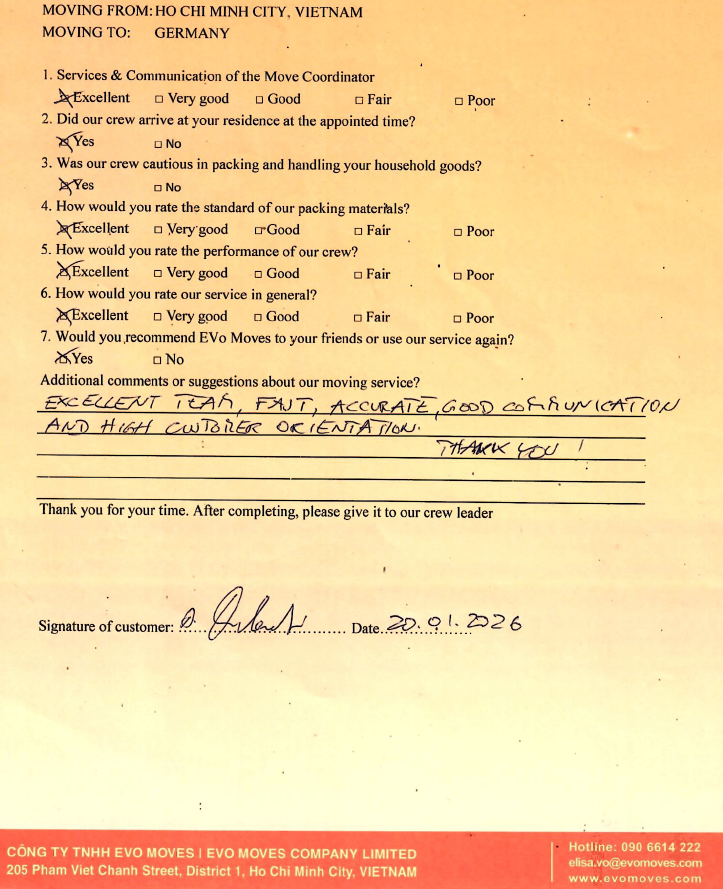 MOVING FROM: HO CHI MINH CITY, VIETNAM
MOVING TO: GERMANY
1. Services & Communication of the Move Coordinator
Excellent Very good Good Fair Poor
2. Did our crew arrive at your residence at the appointed time?
Yes No
3. Was our crew cautious in packing and handling your household goods?
Yes No
4. How would you rate the standard of our packing materials?
Excellent Very good Good Fair Poor
5. How would you rate the performance of our crew?
Excellent Very good Good Fair Poor
6. How would you rate our service in general?
Excellent Very good Good Fair Poor
7. Would you recommend EVo Moves to your friends or use our service again?
Yes No
Additional comments or suggestions about our moving service?
EXCELLENT TEAM, FAST, ACCURATE, GOOD COMMUNICATION
AND HIGH CUSTOMER ORIENTATION.
THANK YOU !
Thank you for your time. After completing, please give it to our crew leader
Signature of customer: Date 20.01.2026
CÔNG TY TNHH EVO MOVES | EVO MOVES COMPANY LIMITED
205 Pham Viet Chanh Street, District 1, Ho Chi Minh City, VIETNAM
Hotline: 090 6614 222
elisa.vo@evomoves.com
www.evomoves.com